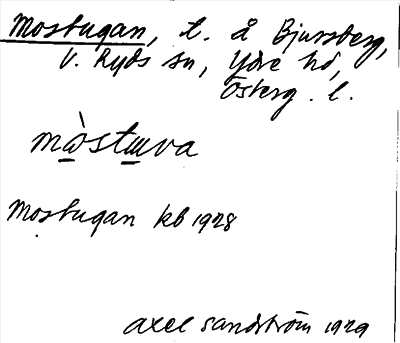 Mostugan, t. å Bjursberg,
V. Ryds sn, Ydre hd,
Österg. l.
mòstuva
Mostugan kb 1928
Axel Sandström 1929